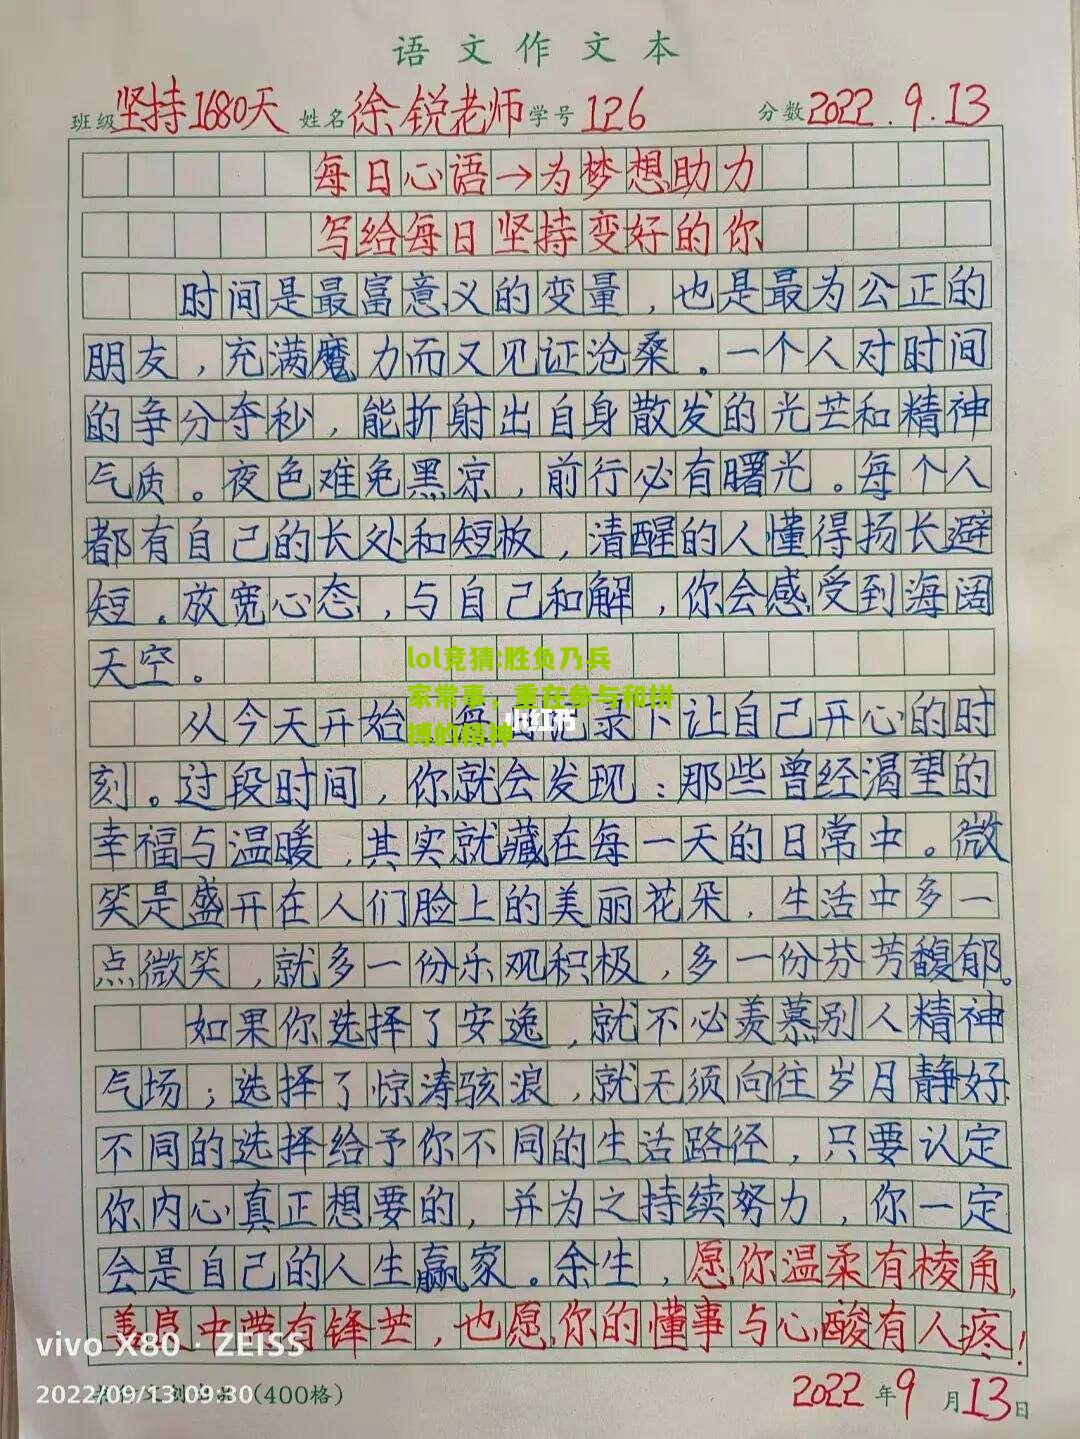 语文作文本
班级坚持1680天 姓名徐锐老师学号126 分数2022.9.13
每日心语→为梦想助力
写给每日坚持变好的你
时间是最富意义的变量，也是最为公正的
朋友，充满魔力而又见证沧桑。一个人对时间
的争分夺秒，能折射出自身散发的光芒和精神
气质。夜色难免黑凉，前行必有曙光。每个人
都有自己的长处和短板，清醒的人懂得扬长避
短。放宽心态，与自己和解，你会感受到海阔
天空。
lol竞猜:胜负乃兵
家常事，重在参与和拼
搏的精神
小红书
从今天开始，每 录下让自己开心的时
刻。过段时间，你就会发现：那些曾经渴望的
幸福与温暖，其实就藏在每一天的日常中。微
笑是盛开在人们脸上的美丽花朵，生活中多一
点微笑，就多一份乐观积极，多一份芬芳馥郁。
如果你选择了安逸，就不必羡慕别人精神
气场；选择了惊涛骇浪，就无须向往岁月静好.
不同的选择给予你不同的生活路径，只要认定
你内心真正想要的，并为之持续努力，你一定
会是自己的人生赢家。余生，愿你温柔有棱角，
善良中带有锋芒，也愿你的懂事与心酸有人疼！
vivo X80 · ZEISS
2022/09/13 09:30
(400格)
2022年9月13日